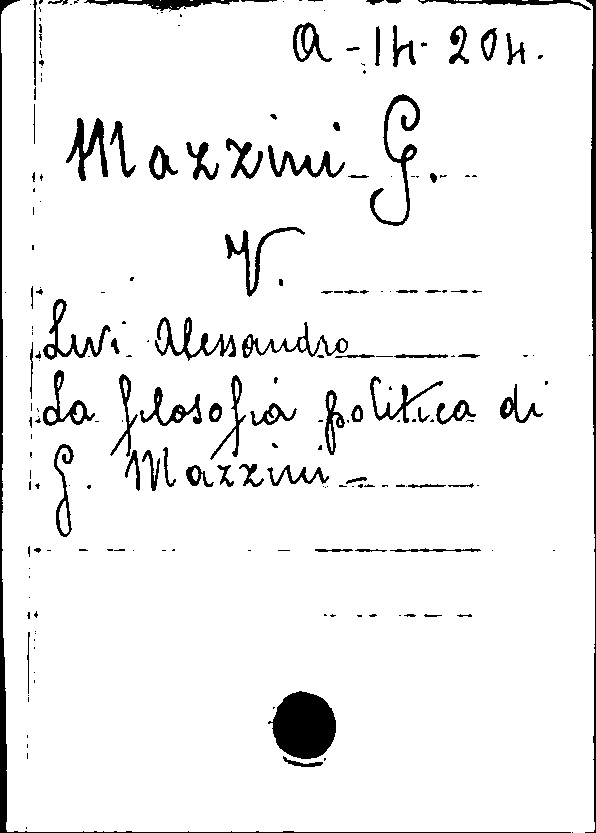 A-14-204.
Mazzini G.
V.
Levi Alessandro
La filosofia politica di
G. Mazzini -